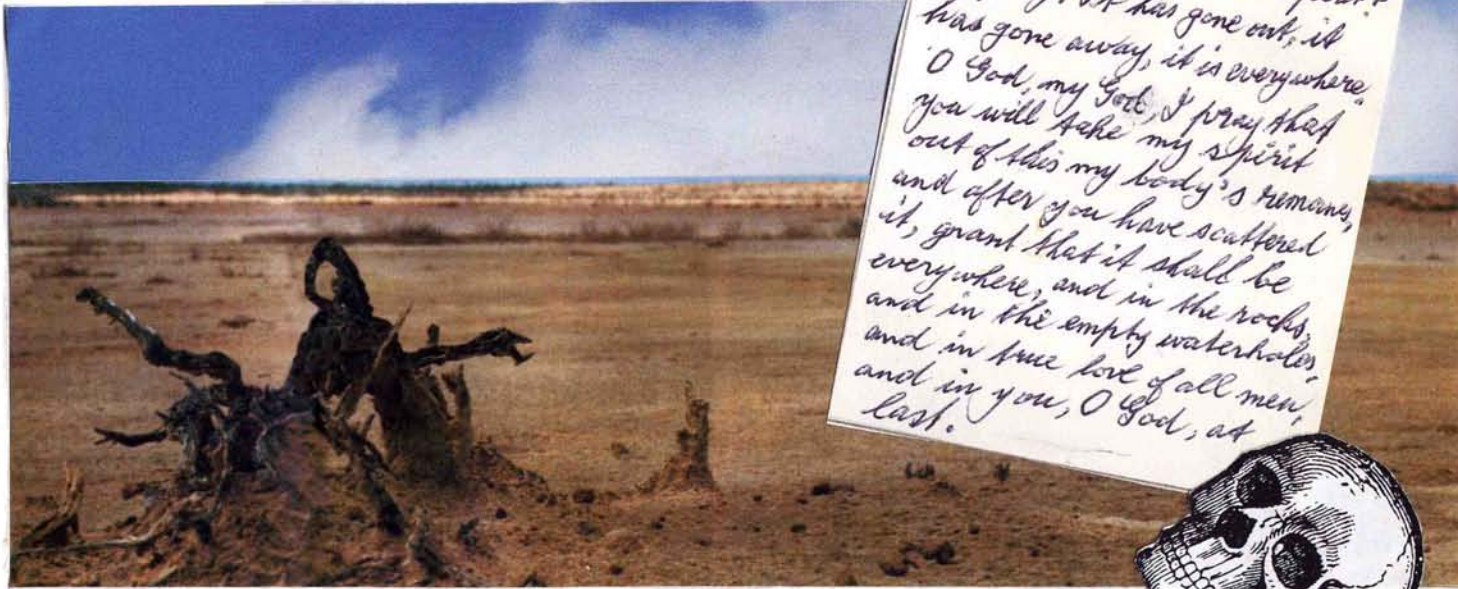 has gone out, it
has gone away, it is everywhere.
O God, my God, I pray that
you will take my spirit
out of this my body's remanes,
and after you have scattered
it, grant that it shall be
everywhere, and in the rocks,
and in the empty waterholes,
and in true love of all men,
and in you, O God, at
last.